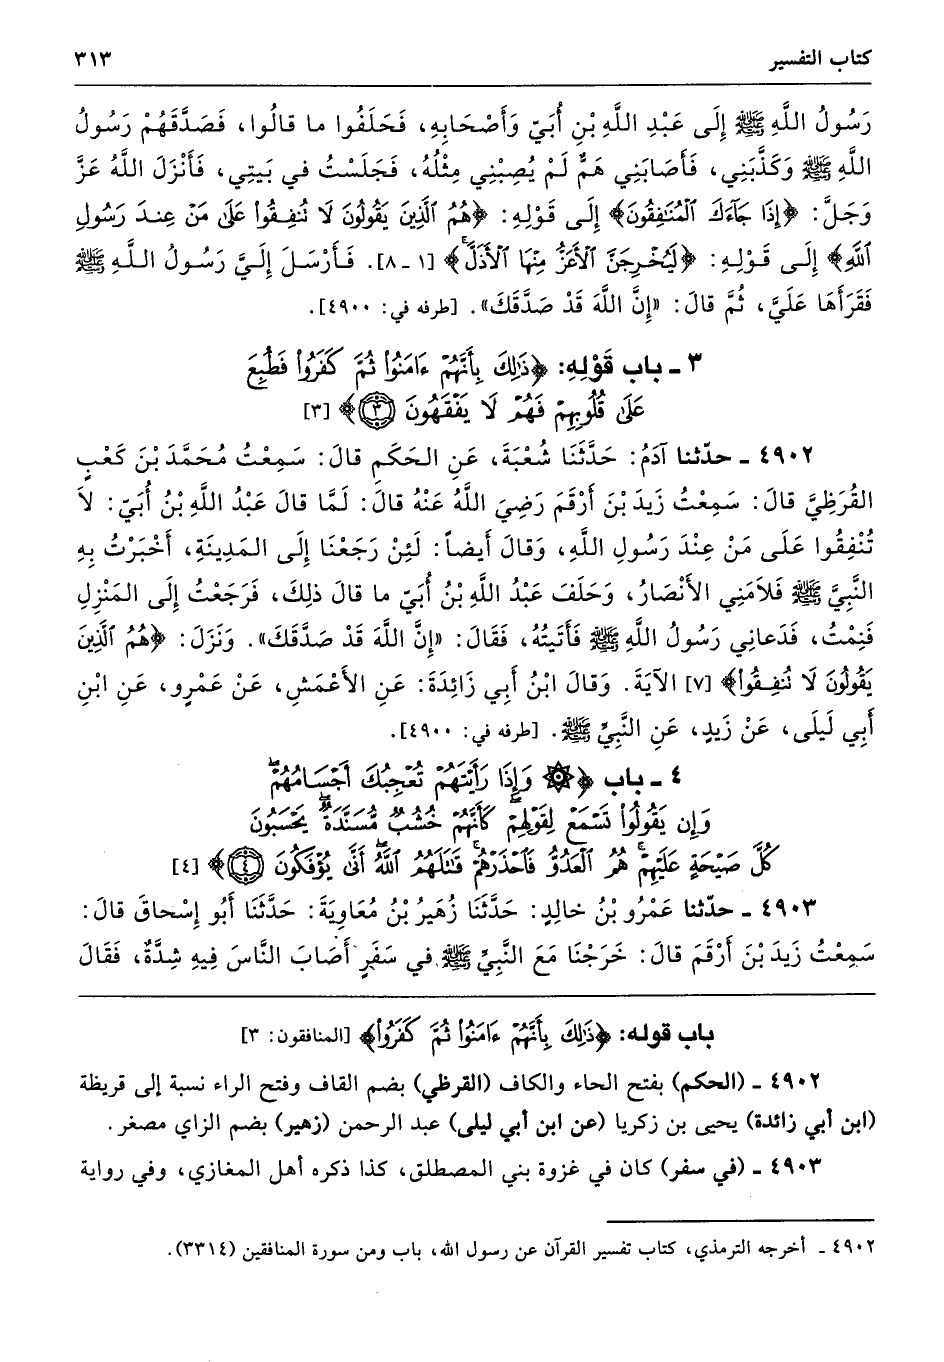 كتاب التفسير ٣١٣
رَسُولُ اللَّهِ ﷺ إِلَى عَبْدِ اللَّهِ بْنِ أُبَيٍّ وَأَصْحَابِهِ، فَحَلَفُوا ما قالُوا، فَصَدَّقَهُمْ رَسُولُ
اللَّهِ ﷺ وَكَذَّبَنِي، فَأَصَابَنِي هَمٌّ لَمْ يُصِبْنِي مِثْلُهُ، فَجَلَسْتُ في بَيتِي، فَأَنْزَلَ اللَّهُ عَزَّ
وَجَلَّ: ﴿إِذَا جَآءَكَ ٱلْمُنَٰفِقُونَ﴾ إِلَى قَوْلِهِ: ﴿هُمُ ٱلَّذِينَ يَقُولُونَ لَا تُنفِقُوا۟ عَلَىٰ مَنْ عِندَ رَسُولِ
ٱللَّهِ﴾ إِلَى قَوْلِهِ: ﴿لَيُخْرِجَنَّ ٱلْأَعَزُّ مِنْهَا ٱلْأَذَلَّ﴾ [١ ـ ٨]. فَأَرْسَلَ إِلَيَّ رَسُولُ اللَّهِ ﷺ
فَقَرَأَهَا عَلَيَّ، ثُمَّ قالَ: «إِنَّ اللَّهَ قَدْ صَدَّقَكَ». [طرفه في: ٤٩٠٠].
٣ ـ باب قَوْلِهِ: ﴿ذَٰلِكَ بِأَنَّهُمْ ءَامَنُوا۟ ثُمَّ كَفَرُوا۟ فَطُبِعَ
عَلَىٰ قُلُوبِهِمْ فَهُمْ لَا يَفْقَهُونَ ٣﴾ [٣]
٤٩٠٢ ـ حدّثنا آدَمُ: حَدَّثَنَا شُعْبَةُ، عَنِ الحَكَمِ قالَ: سَمِعْتُ مُحَمَّدَ بْنَ كَعْبٍ
القُرَظِيَّ قالَ: سَمِعْتُ زَيدَ بْنَ أَرْقَمَ رَضِيَ اللَّهُ عَنْهُ قالَ: لَمَّا قالَ عَبْدُ اللَّهِ بْنُ أُبَيٍّ: لاَ
تُنْفِقُوا عَلَى مَنْ عِنْدَ رَسُولِ اللَّهِ، وَقالَ أَيضاً: لَئِنْ رَجَعْنَا إِلَى المَدِينَةِ، أَخْبَرْتُ بِهِ
النَّبِيَّ ﷺ فَلاَمَنِي الأَنْصَارُ، وَحَلَفَ عَبْدُ اللَّهِ بْنُ أُبَيٍّ ما قالَ ذلِكَ، فَرَجَعْتُ إِلَى المَنْزِلِ
فَنِمْتُ، فَدَعانِي رَسُولُ اللَّهِ ﷺ فَأَتَيتُهُ، فَقَالَ: «إِنَّ اللَّهَ قَدْ صَدَّقَكَ». وَنَزَلَ: ﴿هُمُ ٱلَّذِينَ
يَقُولُونَ لَا تُنفِقُوا۟﴾ [٧] الآيَةَ. وَقالَ ابْنُ أَبِي زَائِدَةَ: عَنِ الأَعْمَشِ، عَنْ عَمْرٍو، عَنِ ابْنِ
أَبِي لَيلَى، عَنْ زَيدٍ، عَنِ النَّبِيِّ ﷺ. [طرفه في: ٤٩٠٠].
٤ ـ باب ﴿۞ وَإِذَا رَأَيْتَهُمْ تُعْجِبُكَ أَجْسَامُهُمْ ۖ
وَإِن يَقُولُوا۟ تَسْمَعْ لِقَوْلِهِمْ ۖ كَأَنَّهُمْ خُشُبٌ مُّسَنَّدَةٌ ۖ يَحْسَبُونَ
كُلَّ صَيْحَةٍ عَلَيْهِمْ ۚ هُمُ ٱلْعَدُوُّ فَٱحْذَرْهُمْ ۚ قَٰتَلَهُمُ ٱللَّهُ ۖ أَنَّىٰ يُؤْفَكُونَ ٤﴾ [٤]
٤٩٠٣ ـ حدّثنا عَمْرُو بْنُ خالِدٍ: حَدَّثَنَا زُهَيرُ بْنُ مُعَاوِيَةَ: حَدَّثَنَا أَبُو إِسْحاقَ قالَ:
سَمِعْتُ زَيدَ بْنَ أَرْقَمَ قالَ: خَرَجْنَا مَعَ النَّبِيِّ ﷺ في سَفَرٍ أَصَابَ النَّاسَ فِيهِ شِدَّةٌ، فَقَالَ
باب قوله: ﴿ذَٰلِكَ بِأَنَّهُمْ ءَامَنُوا۟ ثُمَّ كَفَرُوا۟﴾ [المنافقون: ٣]
٤٩٠٢ ـ (الحكم) بفتح الحاء والكاف (القرظي) بضم القاف وفتح الراء نسبة إلى قريظة
(ابن أبي زائدة) يحيى بن زكريا (عن ابن أبي ليلى) عبد الرحمن (زهير) بضم الزاي مصغر.
٤٩٠٣ ـ (في سفر) كان في غزوة بني المصطلق، كذا ذكره أهل المغازي، وفي رواية
٤٩٠٢ ـ أخرجه الترمذي، كتاب تفسير القرآن عن رسول الله، باب ومن سورة المنافقين (٣٣١٤).